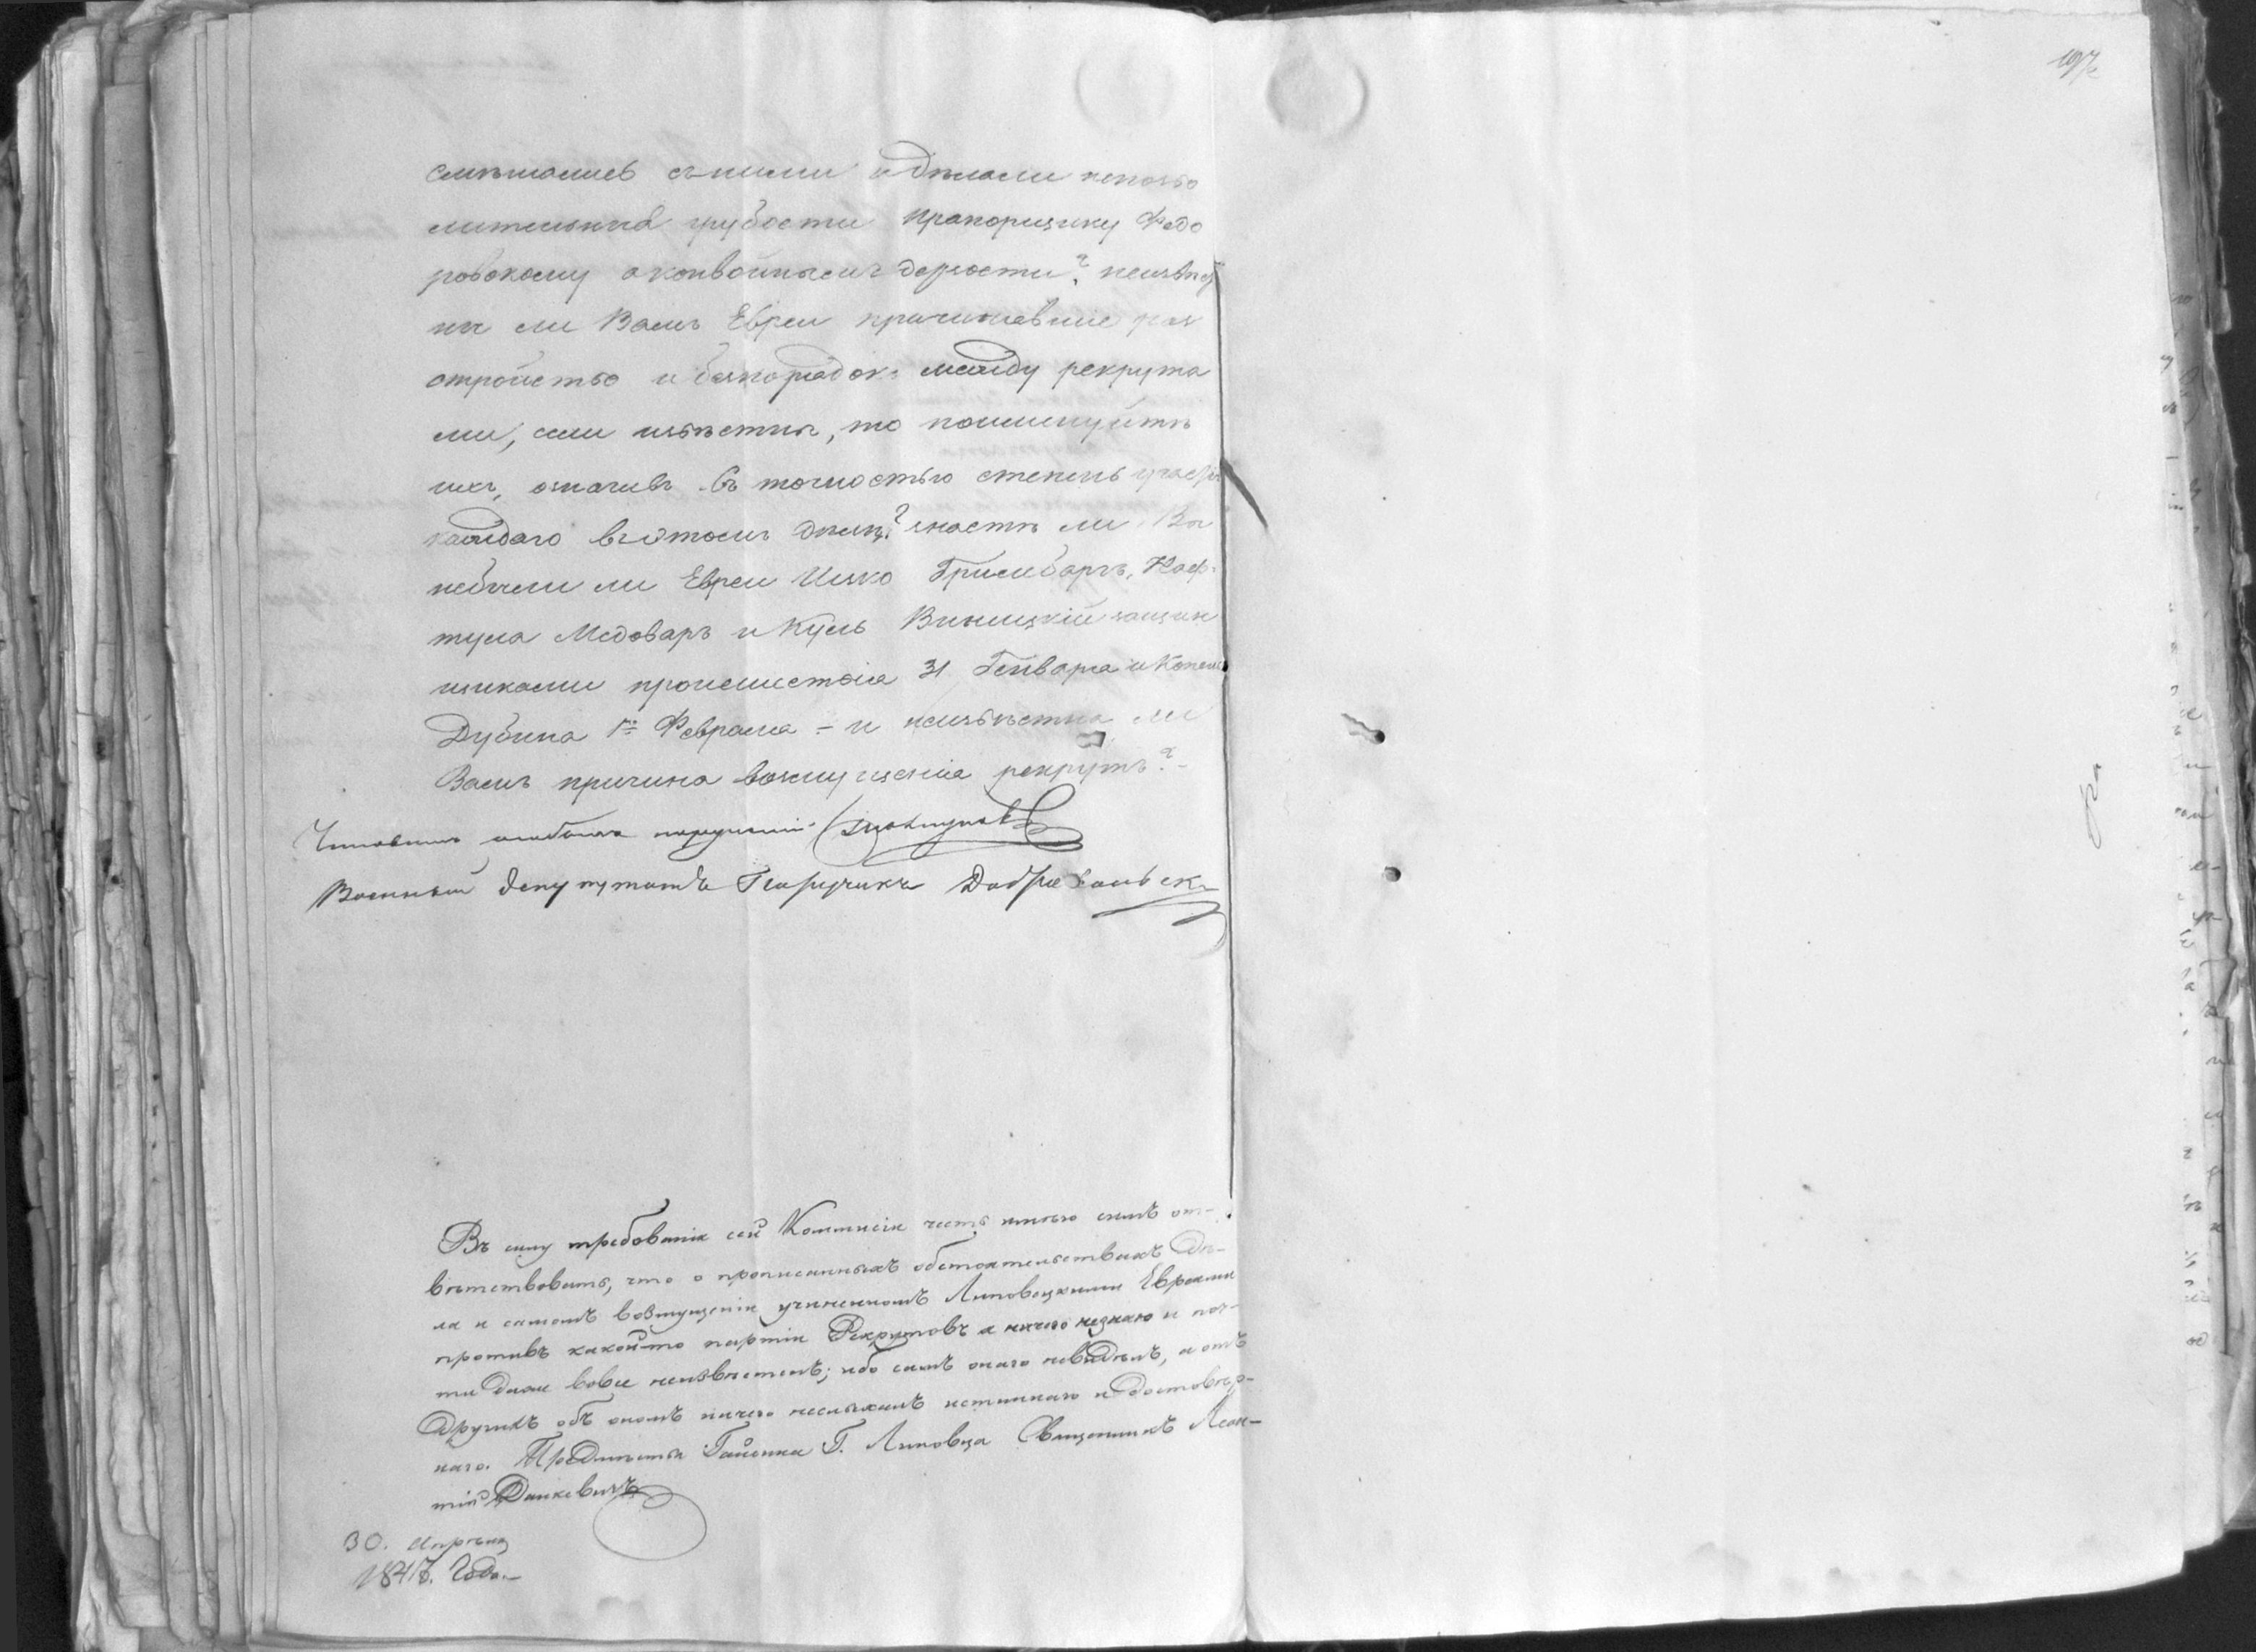 197
смешались съ ними и делали непозво
лительныя грубости Прапорщику Федо
ровскому а конвойнымъ дерзости? неизвест
ны ли Вамъ Евреи причинявшие раз
стройство и безпорядокъ между рекрута
ми, если известны, то поименуйте
ихъ, означивъ съ точностью степень участия
каждаго въ этомъ деле? знаете ли Вы
небыли ли Евреи Ицко Гринбергъ, Наф-
тула Медоваръ и Куль Виницкій зачин
щиками происшествія 31 Генваря и Копель
Дубина 1го Февраля - и неизвестна ли
Вамъ причина возмущенія рекрутъ? -
Чиновникъ особыхъ порученій
Военный депутатъ Поручикъ
Въ силу требованія сей Коммисіи честь имею симъ от-
ветствовать, что о прописанныхъ обстоятельствахъ де-
ла и самомъ возмущеніи учиненномъ Липовецкими Евреями
противъ какой-то партіи Рекрутовъ я ничего незнаю и поч-
ти даже вовсе неизвестенъ; ибо самъ онаго невиделъ, а отъ
другихъ объ ономъ ничего неслыхалъ истиннаго и достовер-
наго. Предместья Гайсинка Г. Липовца Священникъ Леон-
тій Данкевичъ
30. Апреля
184 Года.